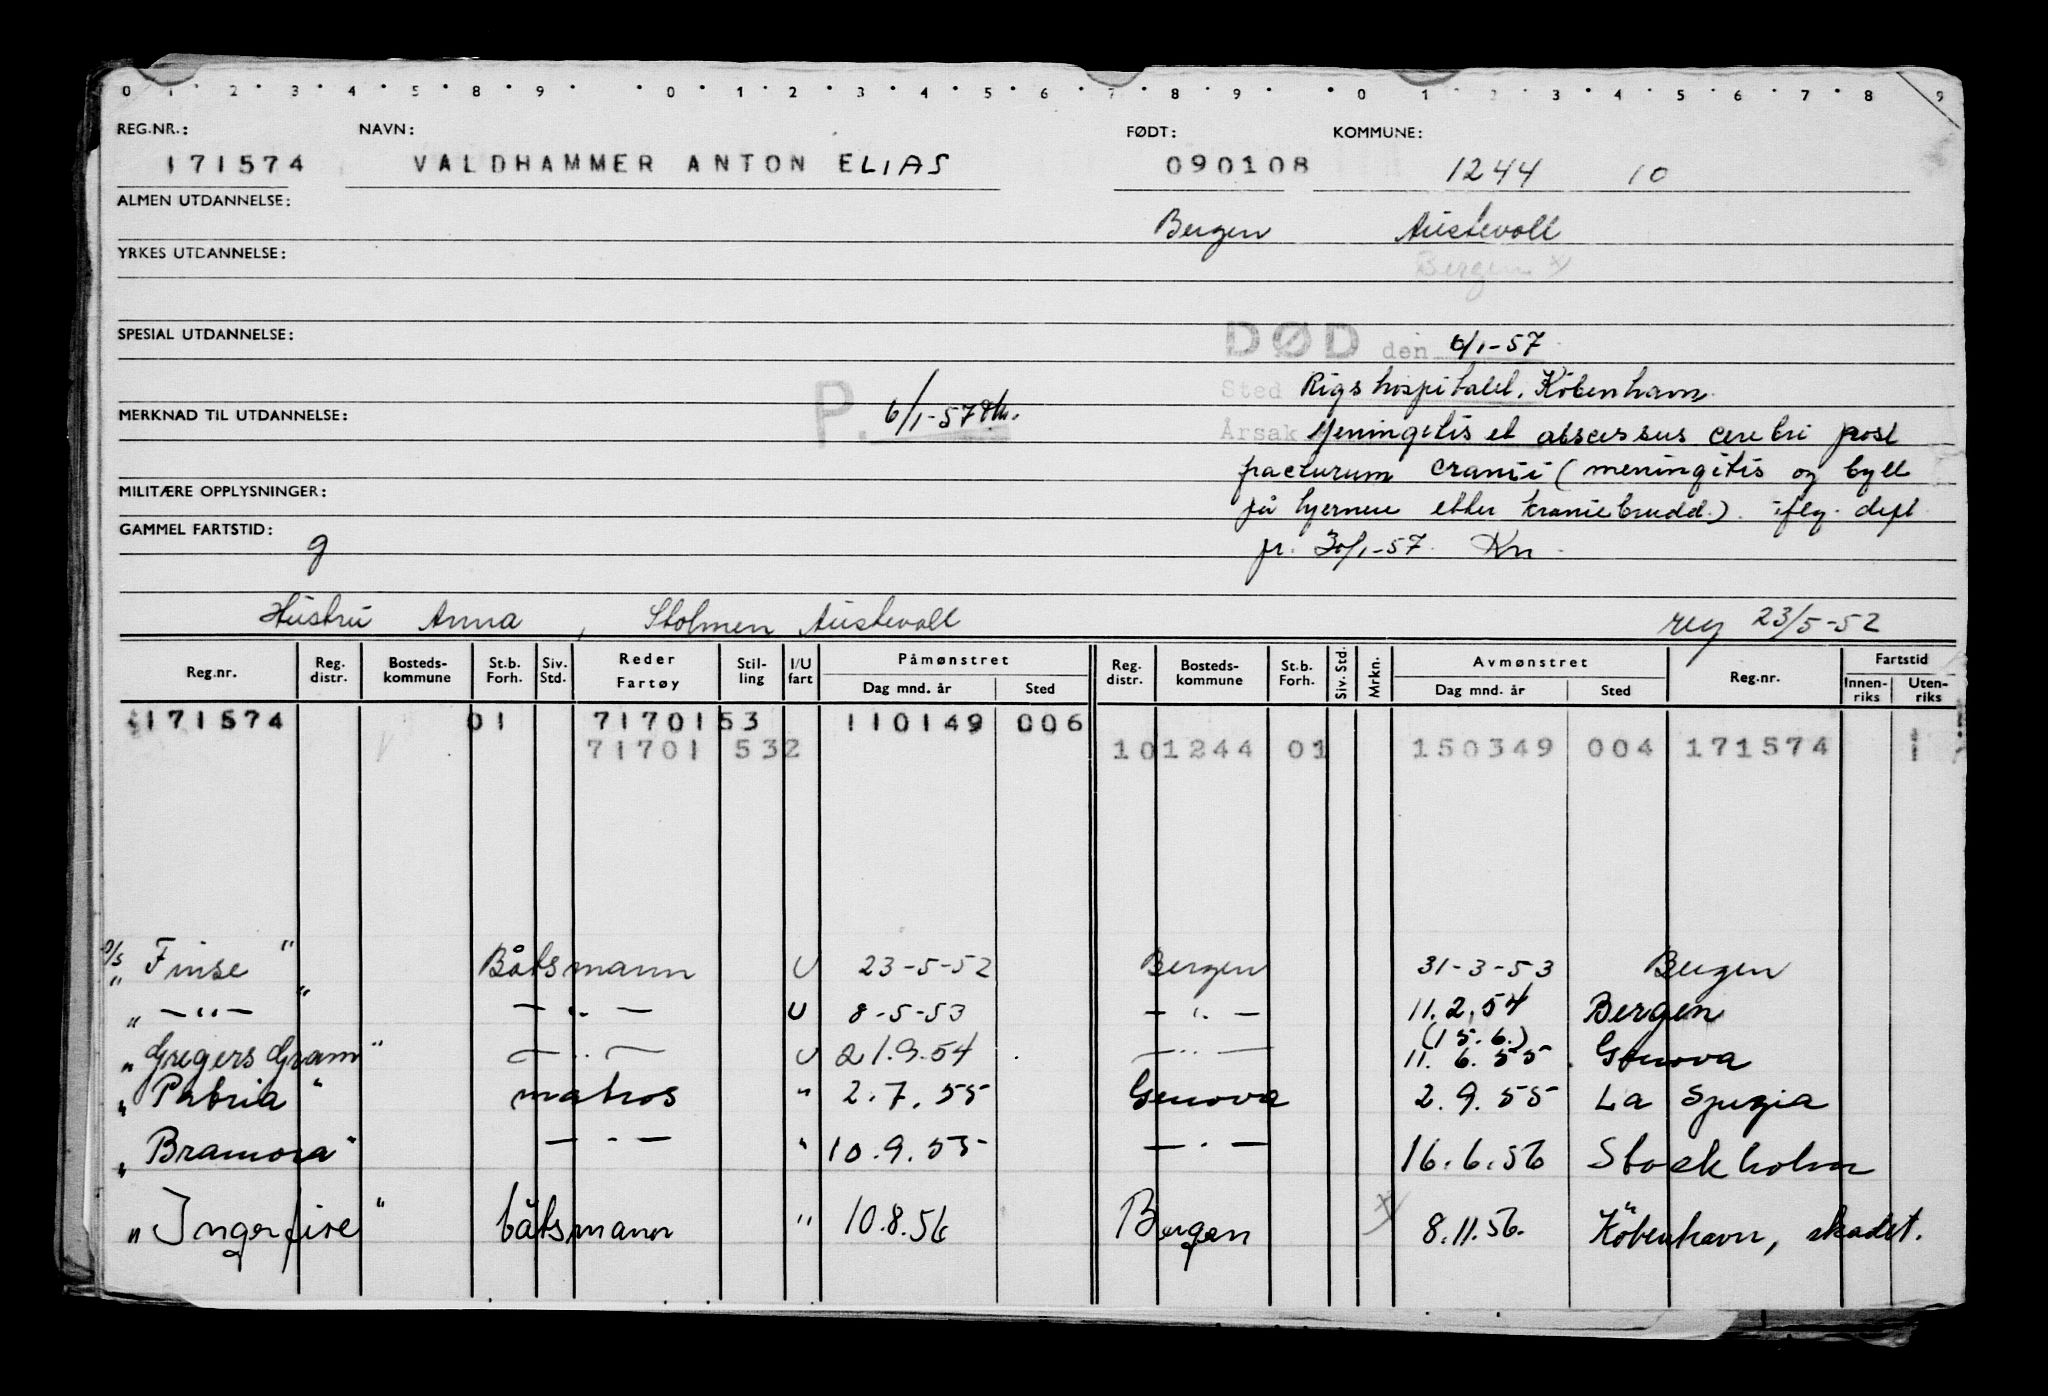 0 1 2 3 4 5 8 9 0 1 2 3 4 5 6 7 8 9 0 1 2 3 4 5 6 7 8 9
REG.NR.: NAVN: FØDT: KOMMUNE:
171574 VALDHAMMER ANTON ELIAS 090108 1244 10
ALMEN UTDANNELSE:
Bergen Austevoll
YRKES UTDANNELSE:
Bergen x)
SPESIAL UTDANNELSE:
DØD den 6/1-57
Sted Rigshospitalet, København
P. 6/1-57
MERKNAD TIL UTDANNELSE:
Årsak Meningitis et abscessus cerebri post
fracturum cranii (meningitis og byll
MILITÆRE OPPLYSNINGER:
på hjernen etter kraniebrudd.) iflg. dept
GAMMEL FARTSTID:
g
pr. 30/1-57. Kn.
Hustru Anna, Stolmen Austevoll reg 23/5-52
Reg.nr. Reg. distr. Bosteds-kommune St.b. Forh. Siv. Std. Reder Fartøy Stil-ling I/U fart Påmønstret Dag mnd. år Sted Reg. distr. Bosteds-kommune St.b. Forh. Siv. Std. Mrkn. Avmønstret Dag mnd. år Sted Reg.nr. Fartstid Innen-riks Uten-riks
171574 01 7170153 110149 006
71701 532 101244 01 150349 004 171574 1
D/S
" Finse " Båtsmann U 23-5-52 Bergen 31-3-53 Bergen
" —"— " — " — U 8-5-53 — " — 11.2.54 Bergen
(15.6.)
" Gregers Gram " — " — U 21.9.54 — " — 11.6.55. Genova
" Patria " matros " 2.7.55 Genova 2.9.55 La Spezia
" Bramora " — " — " 10.9.55 — " — 16.6.56 Stockholm
" Ingerfire " båtsmann " 10.8.56 Bergen x) 8.11.56. København, skadet.